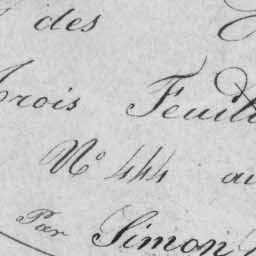 des
Trois Feuill
N° 444 au
Par Simon